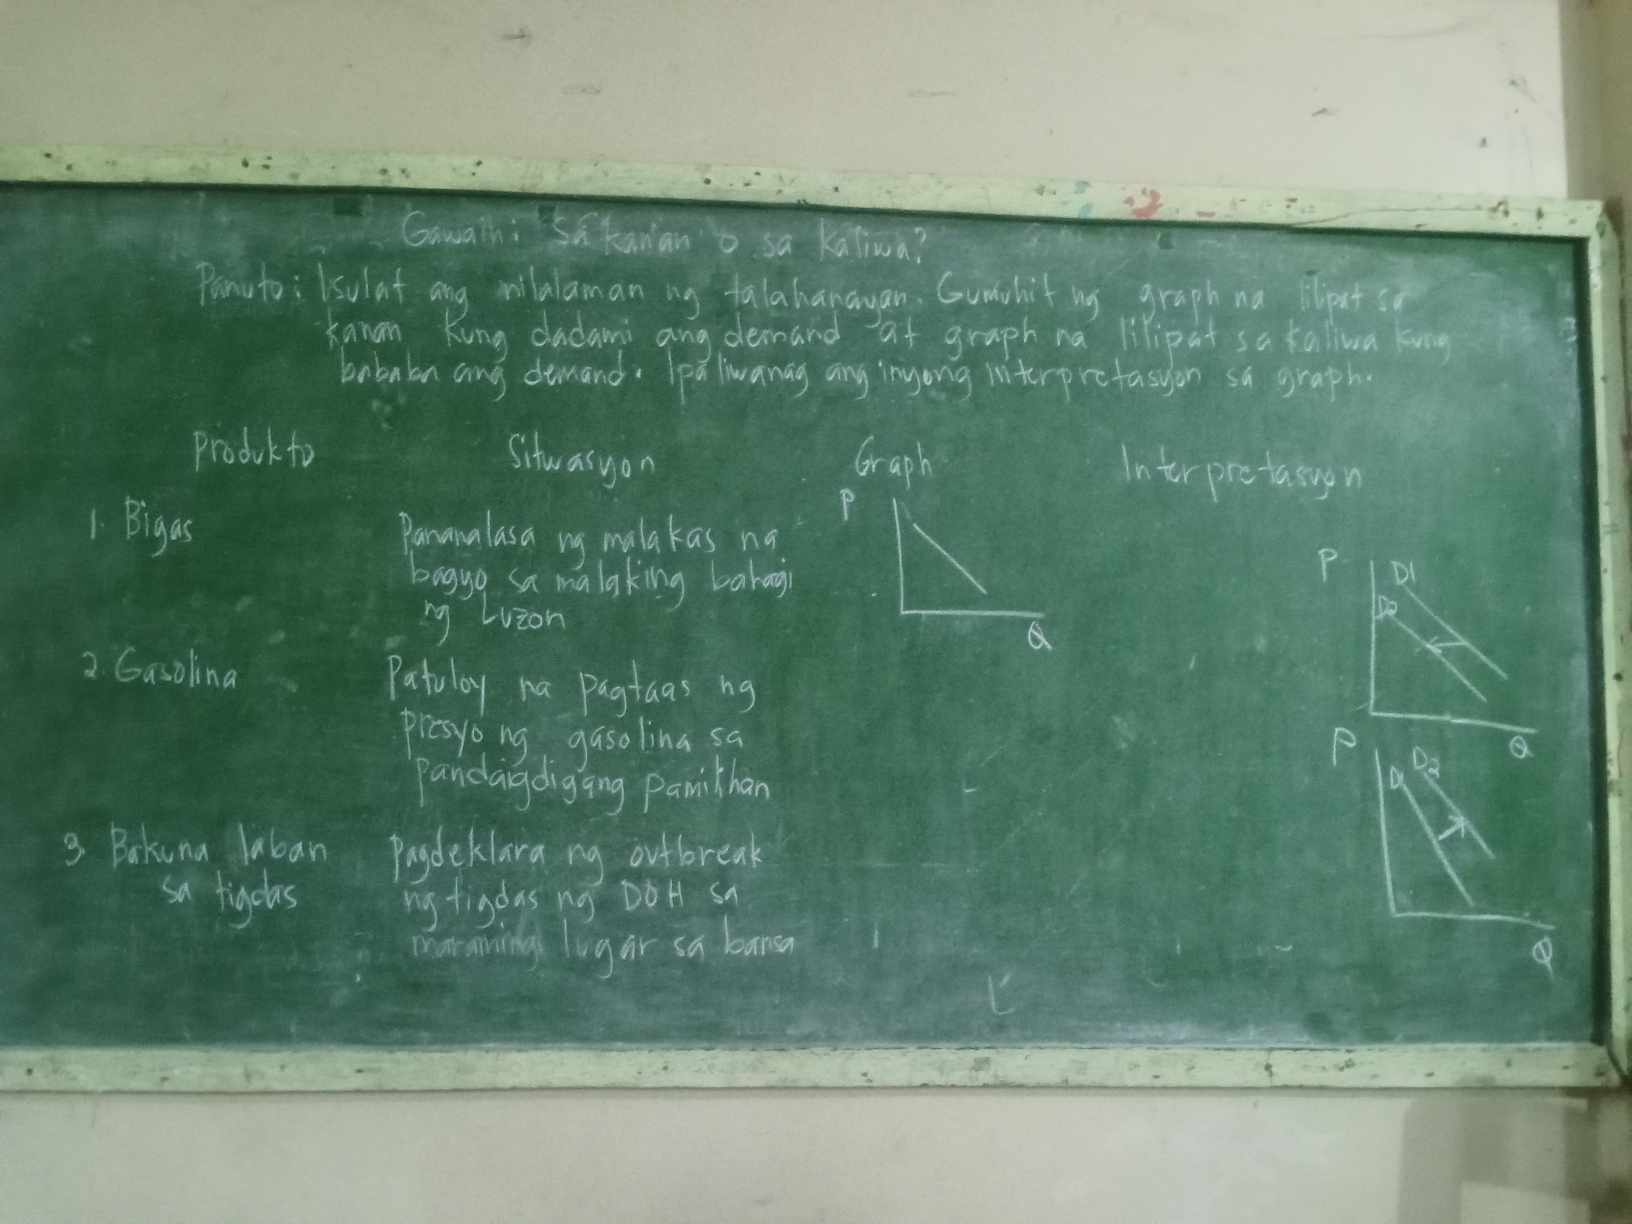 Gawain: Sa kanan o sa kaliwa?
Panuto: Isulat ang nilalaman ng talahanayan. Gumuhit ng graph na lilipat sa
kanan kung dadami ang demand at graph na lilipat sa kaliwa kung
bababa ang demand. Ipaliwanag ang inyong interpretasyon sa graph.
Produkto Sitwasyon Graph Interpretasyon
1. Bigas
Pananalasa ng malakas na
bagyo sa malaking bahagi
ng Luzon
P
Q
P D1
D2
Q
2. Gasolina
Patuloy na pagtaas ng
presyo ng gasolina sa
pandaigdigang pamilihan
P D D2
Q
3. Bakuna laban
sa tigdas
Pagdeklara ng outbreak
ng tigdas ng DOH sa
maraming lugar sa bansa